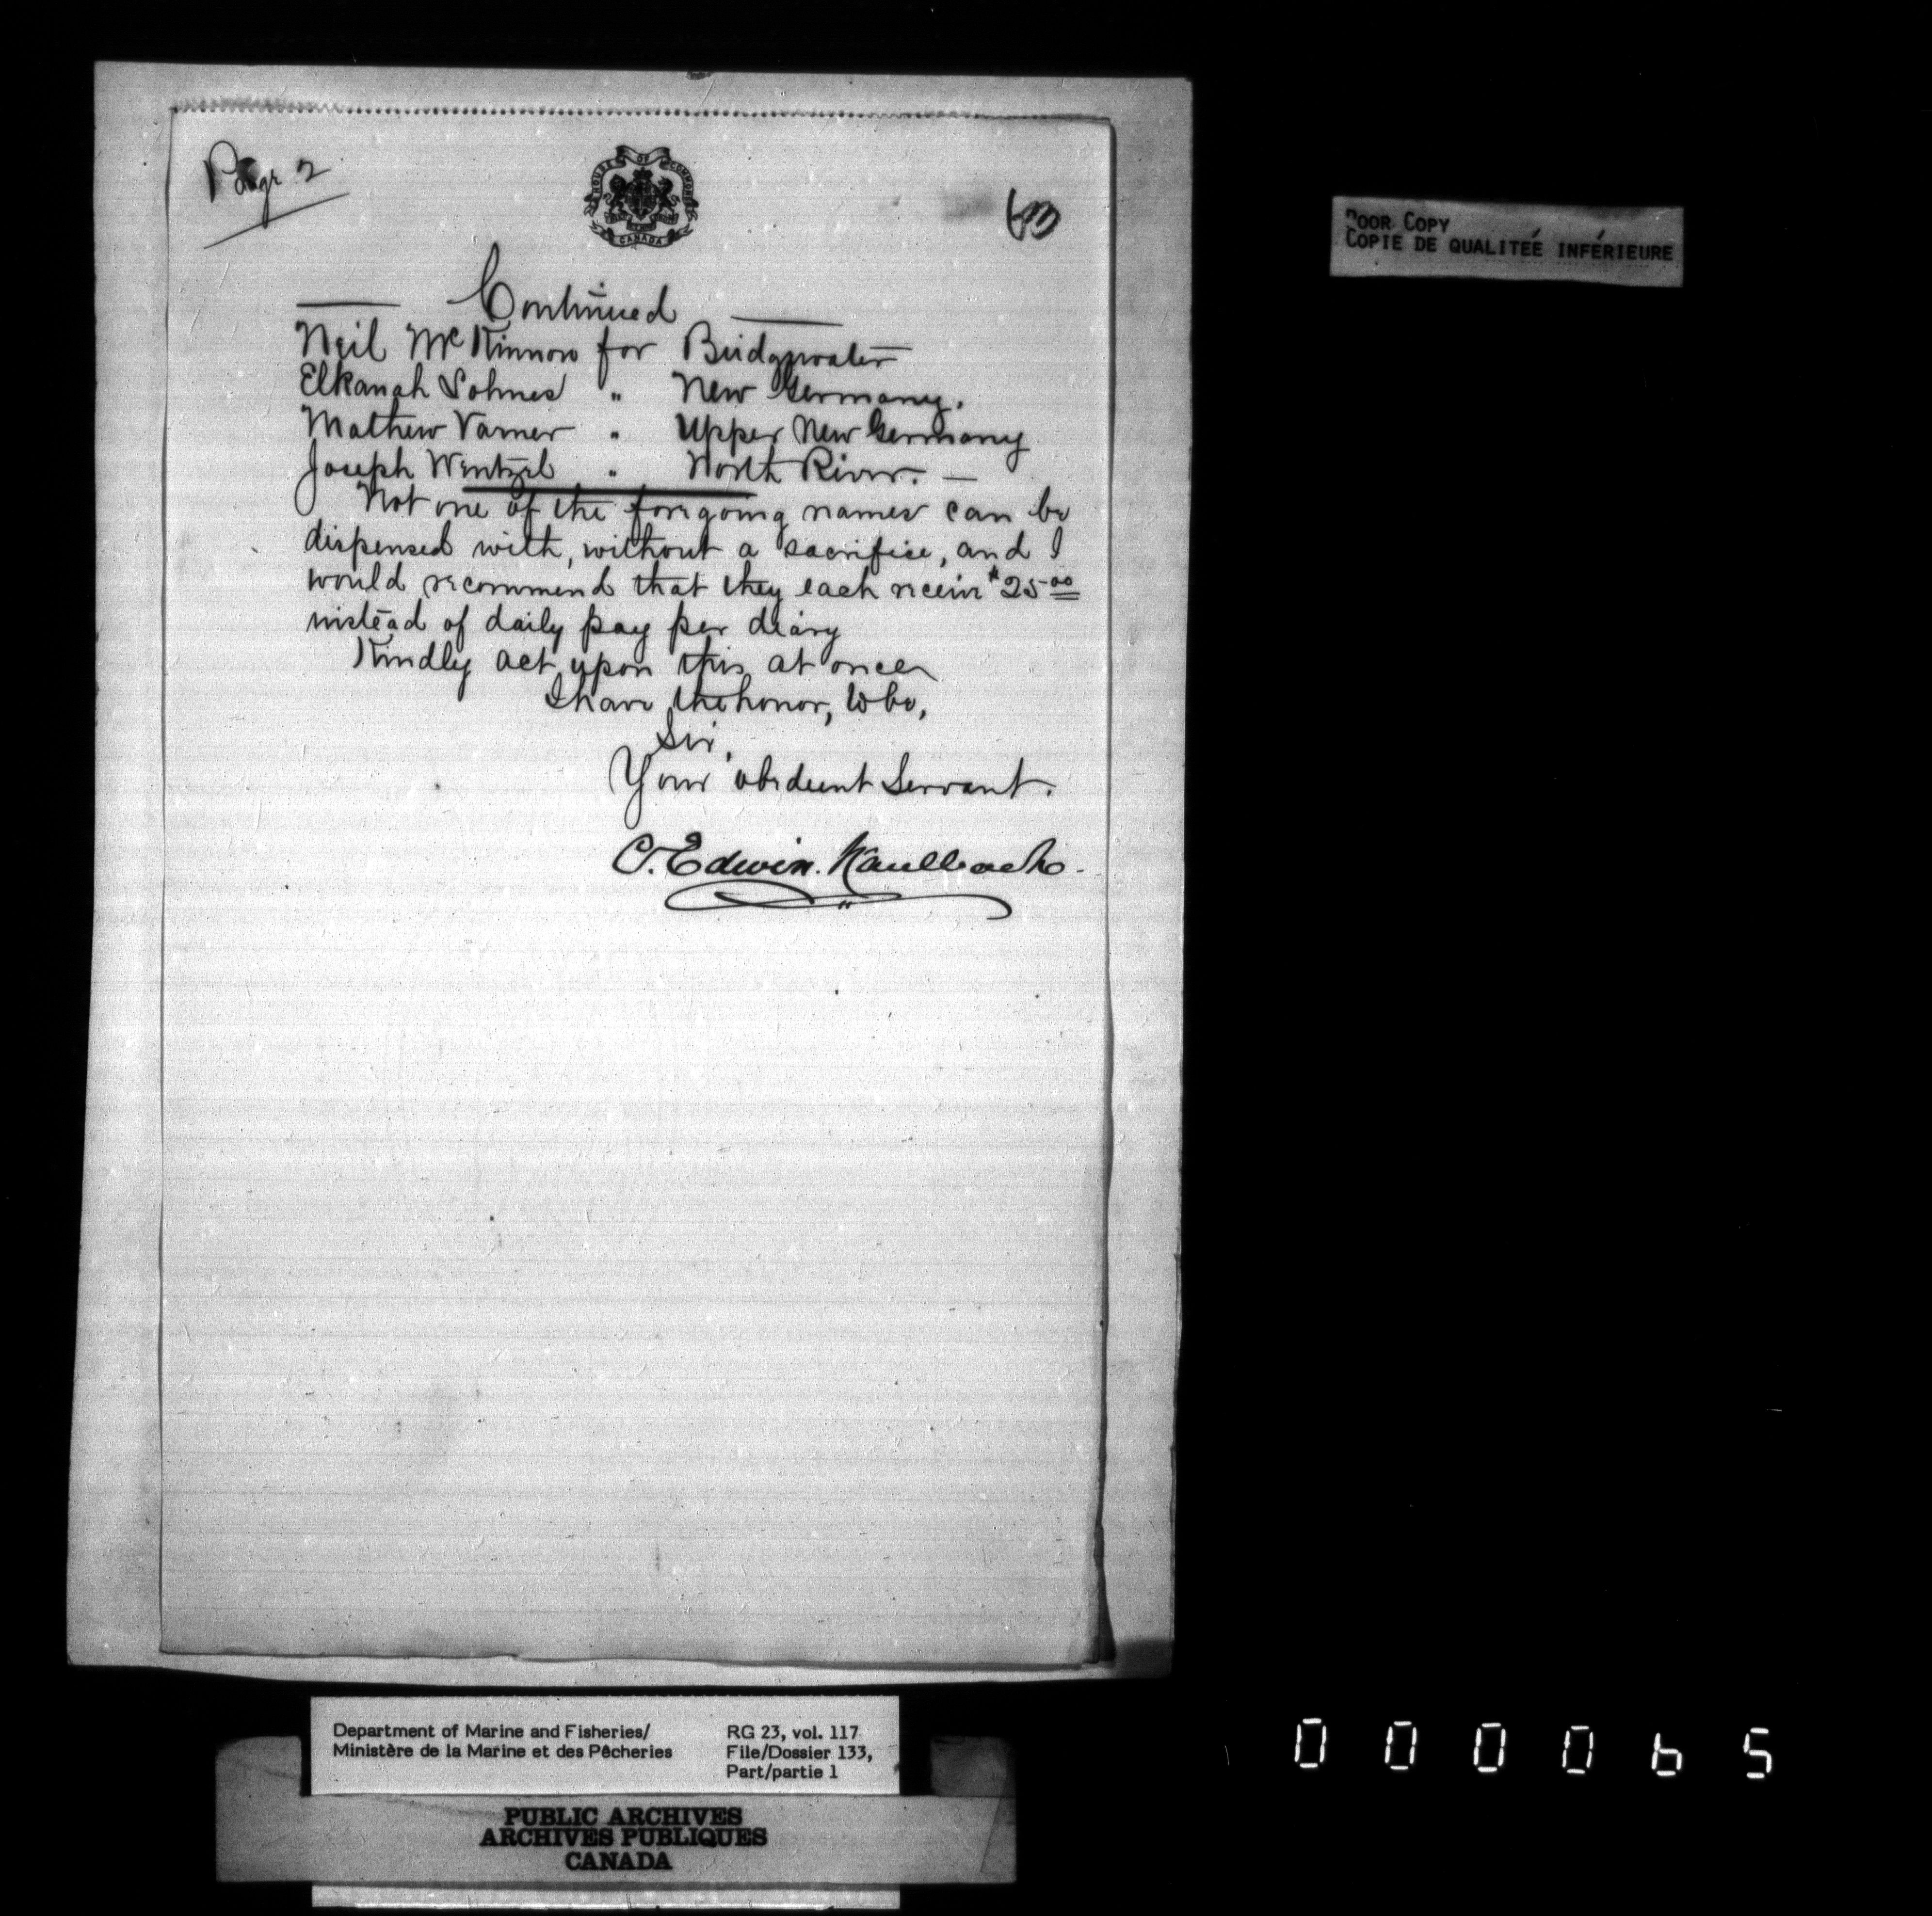 Page 2
HOUSE OF COMMONS
CANADA
63
Continued
Neil McKinnon for Bridgewater
Elkanah Sohnes " New Germany.
Mathew Varner " Upper New Germany
Joseph Wentzel " North River. —
Not one of the foregoing names can be
dispensed with, without a sacrifice, and I
would recommend that they each receive $25.00
instead of daily pay per diary
Kindly act upon this at once
I have the honor, to be,
Sir,
Your obedient Servant.
C. Edwin. Kaulbach.
POOR COPY
COPIE DE QUALITEÉ INFÉRIEURE
Department of Marine and Fisheries/
Ministère de la Marine et des Pêcheries
RG 23, vol. 117
File/Dossier 133,
Part/partie 1
PUBLIC ARCHIVES
ARCHIVES PUBLIQUES
CANADA
000065